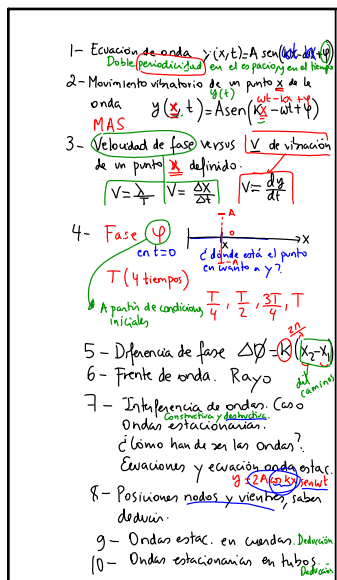 1- Ecuación de onda y(x,t)=A sen(ωt-kx+φ)
Doble periodicidad en el espacio y en el tiempo
2- Movimiento vibratorio de un punto x de la
y(t)
ωt-kx+φ
onda y(x,t)=Asen(Kx-ωt+φ)
MAS
3- Velocidad de fase versus V de vibración
de un punto x definido.
V=λ/T V=Δx/Δt V=dy/dt
4- Fase φ
en t=0
A
x
X
-A
¿dónde está el punto
en cuanto a y?
T (4 tiempos)
A partir de condiciones
iniciales
T/4, T/2, 3T/4, T
2π
5- Diferencia de fase ΔØ=K(x₂-x₁)
dif
caminos
6- Frente de onda. Rayo
7- Interferencia de ondas. Caso
Constructiva y destructiva
Ondas estacionarias.
¿Cómo han de ser las ondas?
Ecuaciones y ecuación onda estac.
y=2A cos kx sen ωt
8- Posiciones nodos y vientres, saber
deducir.
9- Ondas estac. en cuerdas. Deducción
10- Ondas estacionarias en tubos.
Deducción